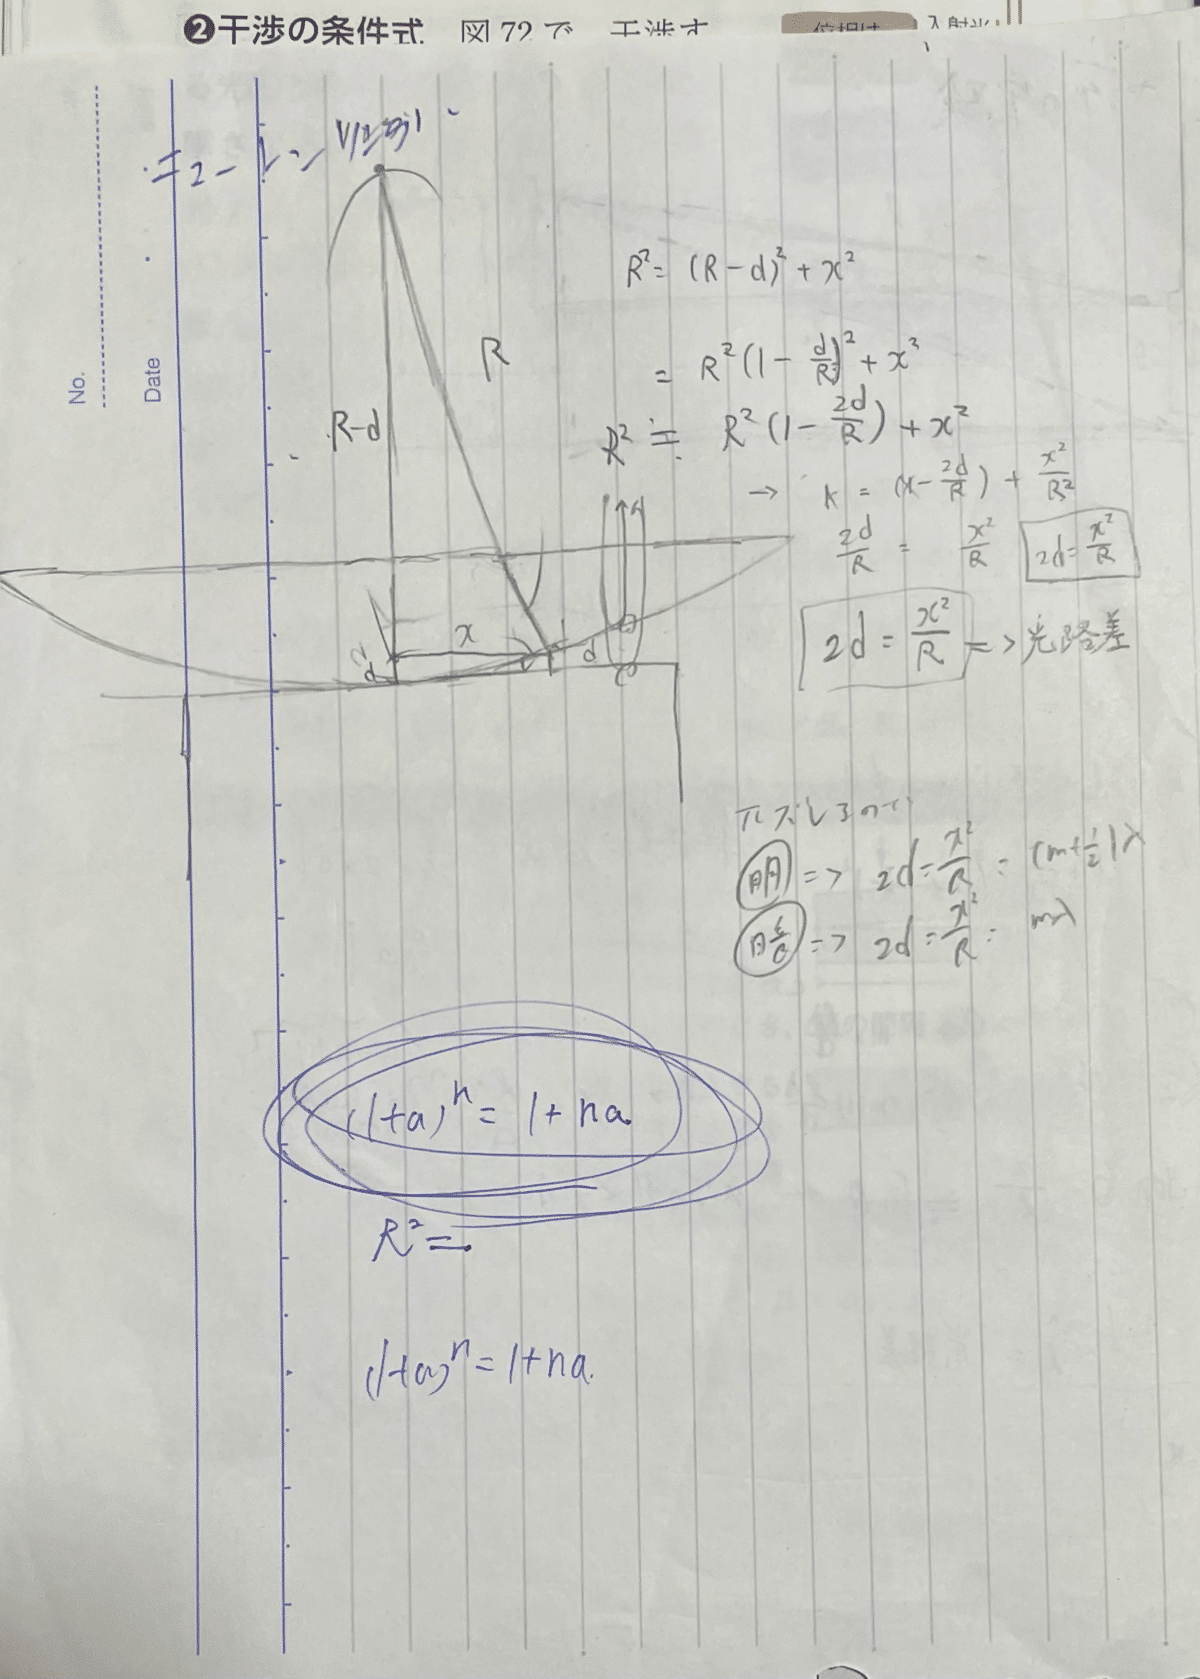 ❷干渉の条件式 図72で 干渉す
No.
Date
R² = (R-d)² + x²
R
= R²(1 - d/R)² + x²
R-d
R² ≒ R²(1 - 2d/R) + x²
→ 1 = (1 - 2d/R) + x²/R²
2d/R = x²/R
2d = x²/R
x
d
d
2d = x²/R => 光路差
πズレるので
明 => 2d = x²/R = (m+1/2)λ
暗 => 2d = x²/R = mλ
(1+a)ⁿ = 1 + na
R² =
(1+a)ⁿ = 1 + na.